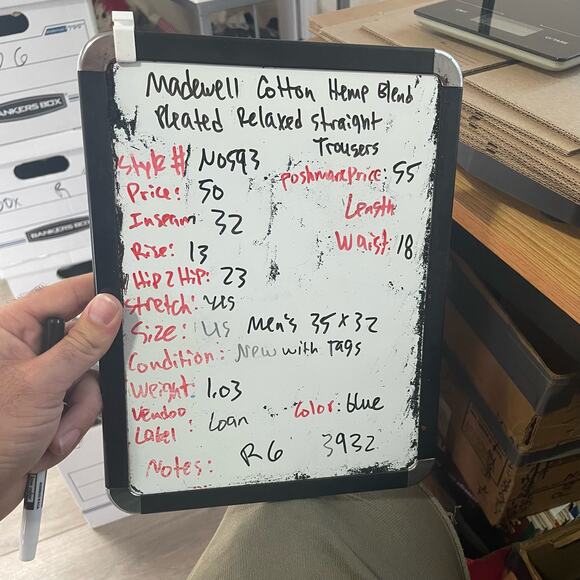 Madewell Cotton Hemp Blend
Pleated Relaxed Straight
Trousers
Style # NO593
Poshmark Price: 55
Price: 50
Length
Inseam 32
Waist: 18
Rise: 13
Hip 2 Hip: 23
Stretch: yes
Size: US Men's 35 x 32
Condition: New with Tags
Weight: 1.03
Vendoo
Label: Loan
Color: blue
Notes: R6 3932
BANKERS BOX
BANKERS BOX